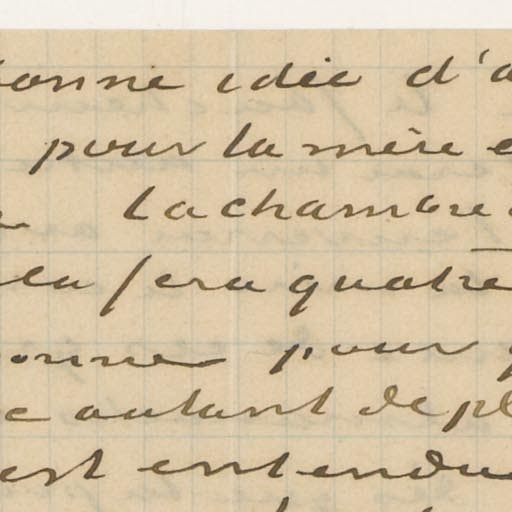 bonne idée d'a
pour la mère e
la chambre
la sera quatre
onne pour q
c autant de pl
est entendu